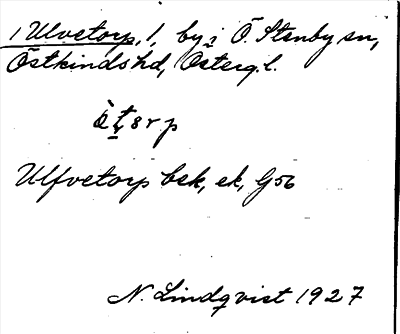 1 Ulvetorp, 1, by i Ö. Stenby sn,
Östkinds hd, Österg. l.
Ulfvetorp bsk, ek, G56
N. Lindqvist 1927